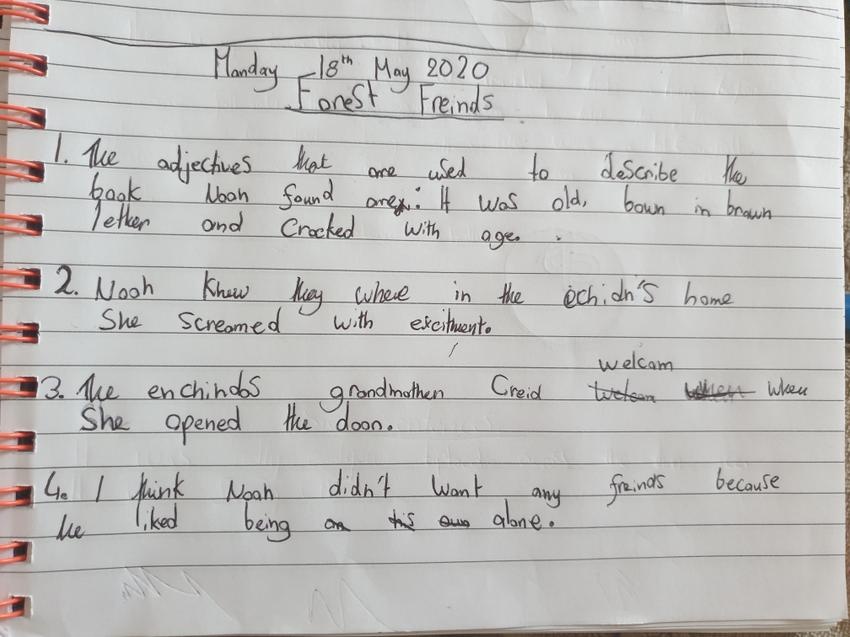 Monday 18th May 2020
Forest Freinds
1. The adjectives that are used to describe the
book Noah found are: It was old, bown in brown
lether and Cracked with age.
2. Noah Knew they where in the echidn's home
She screamed with excitment.
3. The enchindas grandmother Creid welcom
welcom when when
She opened the door.
4. I think Noah didn't want any freinds because
he liked being on his own alone.